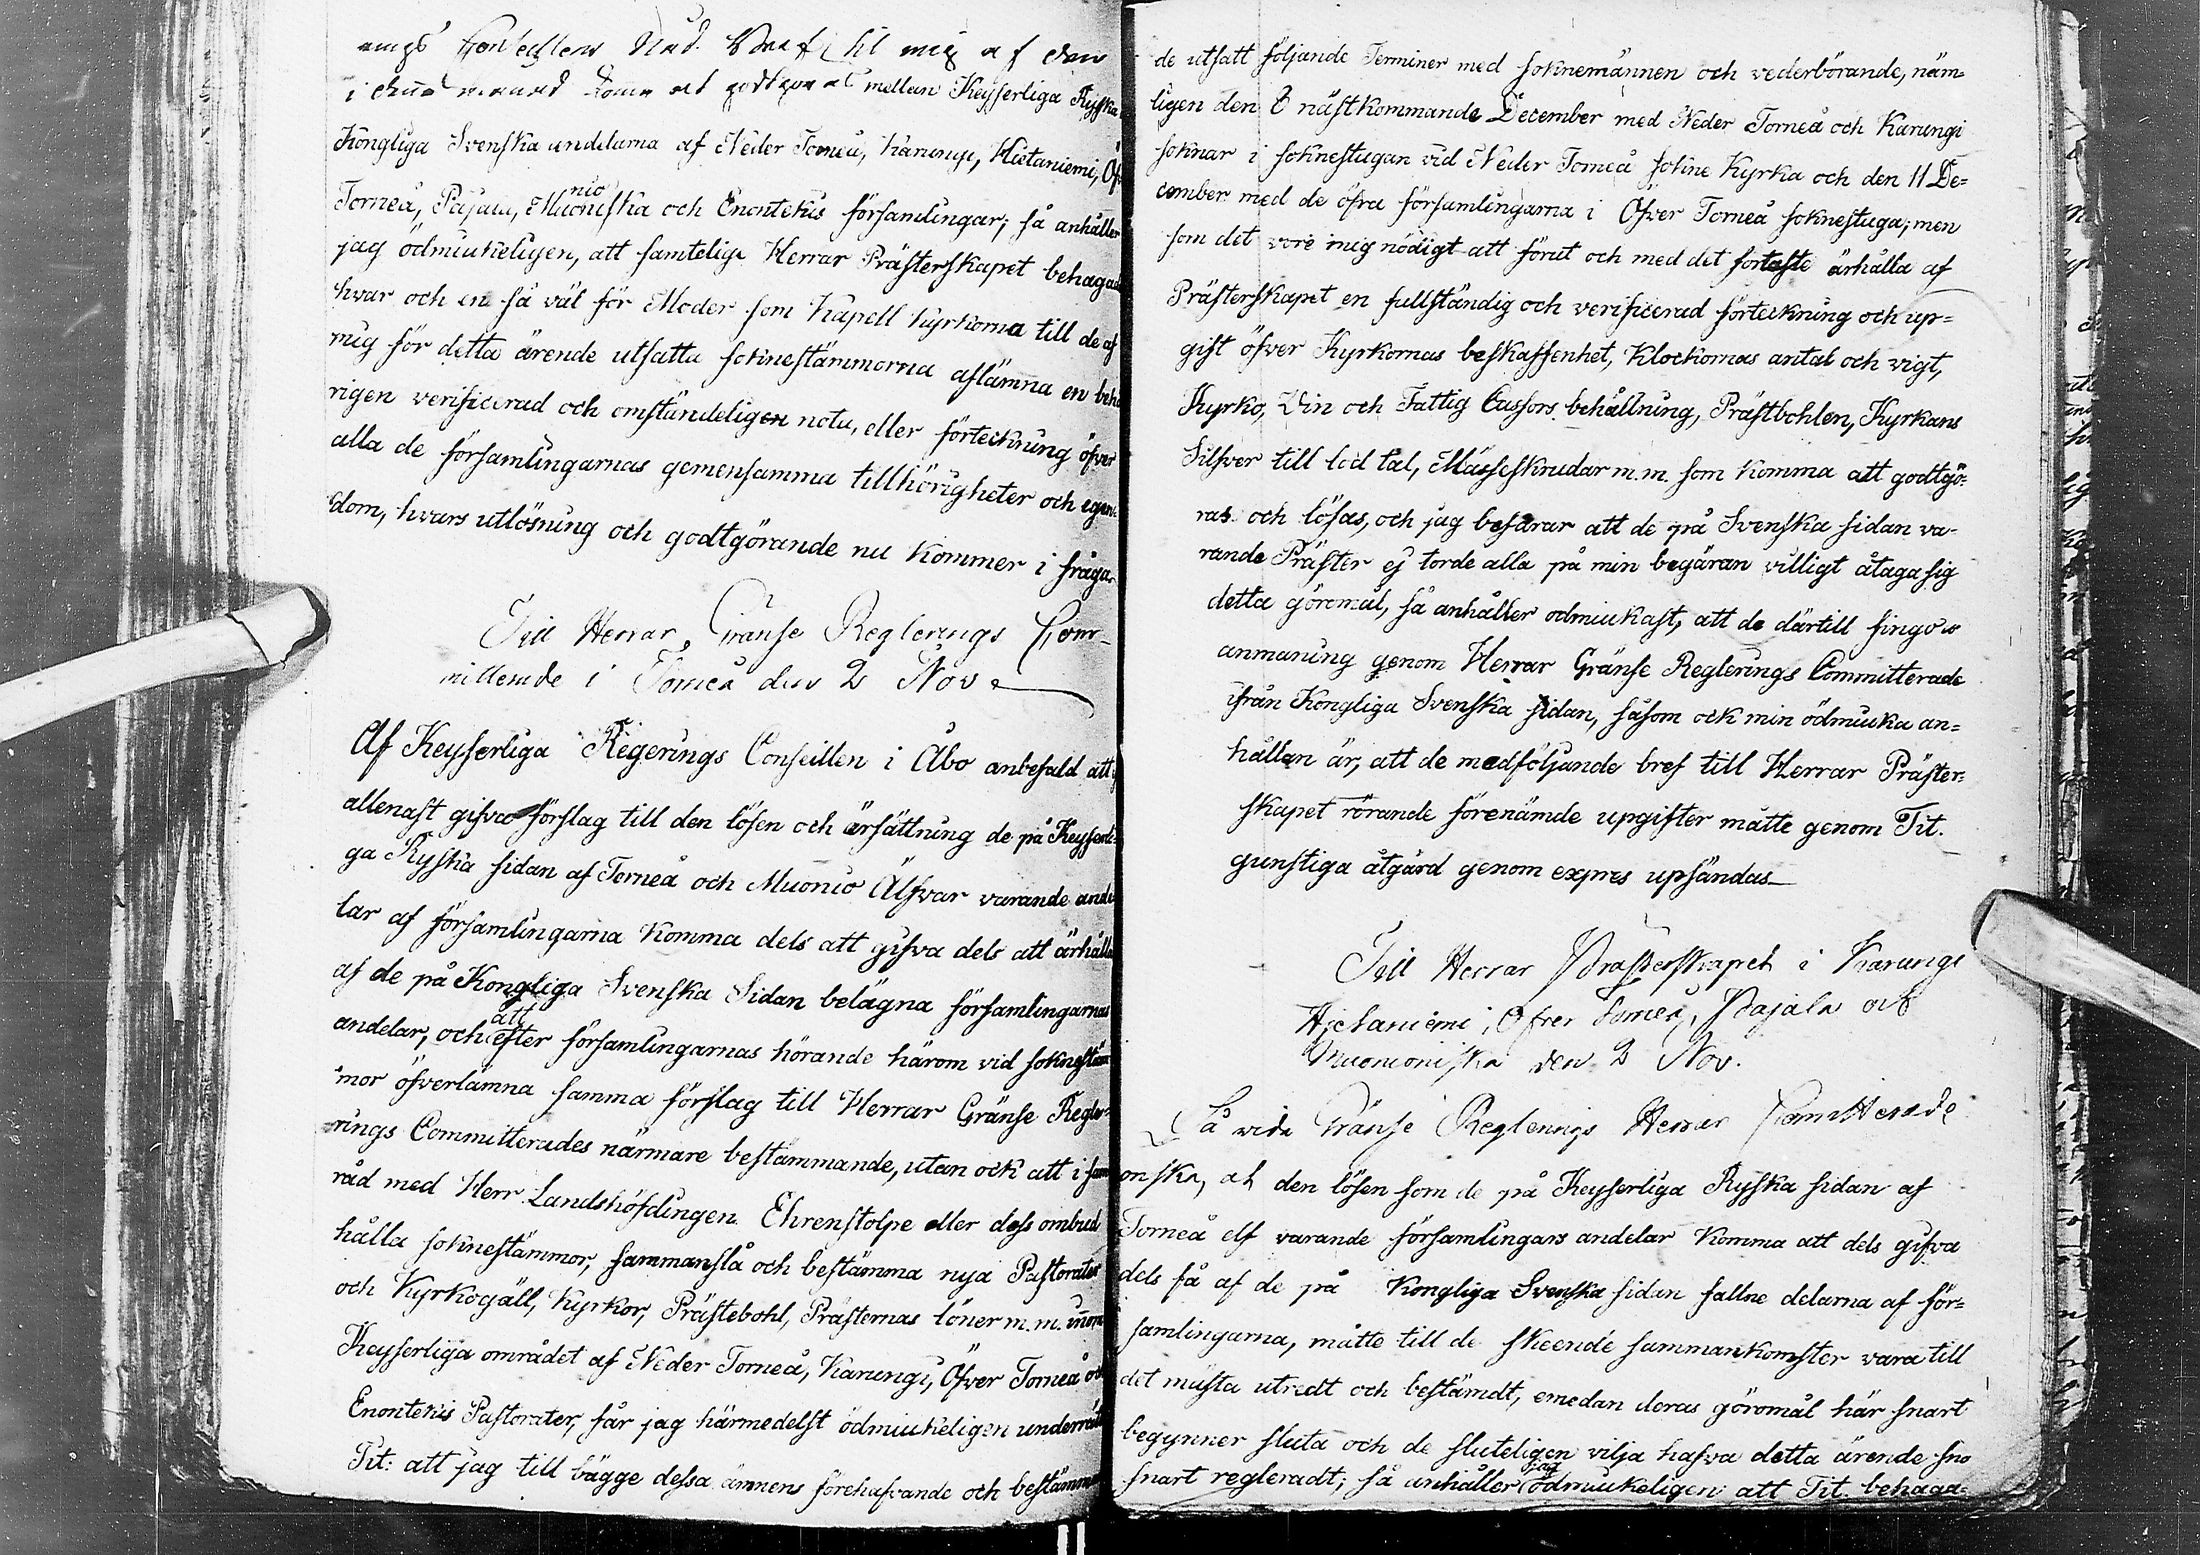 rings Conseillens Nåd. Bref til mig af den
i denna månad komma at godtgöras mellan Keyserliga Ryska
Kongliga Svenska andelarna af Neder Torneå, Karungi, Hietaniemi, Öf
nio
Torneå, Pajala, Muoniska och Enontekis församlingar; så anhåller
jag ödmiukeligen, att samtelige Herrar Prästerskapet behagade
hvar och en så väl för Moder som Kapell kyrkorna till de af
mig för detta ärende utsatta soknestämmorna aflämna en behö
rigen verificerad och omständeligen nota, eller förteckning öfver
alla de församlingarnas gemensamma tillhörigheter och egen-
dom, hvars utlösning och godtgörande nu kommer i fråga.
Till Herrar Gränse Reglerings Com-
mitterade i Torneå den 2 Nov.
Af Keyserliga Regerings Conseillen i Åbo anbefald att
allenast gifva förslag till den lösen och ärsättning de på Keyserli-
ga Ryska sidan af Torneå och Muonio Älfvar varande ande
lar af församlingarna komma dels att gifva dels att ärhålla
af de på Kongliga Svenska Sidan belägna församlingarnas
att
andelar, och efter församlingarnas hörande härom vid soknestäm
mor öfverlämna samma förslag till Herrar Gränse Regle-
rings Committerades närmare bestämmande, utan ock att i sam
råd med Herr Landshöfdingen Ehrenstolpe eller dess ombud
hålla soknestämmor, sammanslå och bestämma nya Pastorater
och Kyrkogäll, Kyrkor, Prästebohl, Prästernas löner m.m. inom
Keyserliga området af Neder Torneå, Karungi, Öfver Torneå och
Enontekis Pastorater, får jag härmedelst ödmiukeligen underrätta
Tit: att jag till bägge dessa ämnens förehafvande och bestämman
de utsatt följande Terminer med soknemännen och vederbörande, näm-
ligen den 8 nästkommande December med Neder Torneå och Karungi
soknar i soknestugan vid Neder Torneå sokne Kyrka och den 11 De=
cember med de öfra församlingarna i Öfver Torneå soknestuga; men
som det vore mig nödigt att förut och med det fortaste ärhålla af
Prästerskapet en fullständig och verificerad förteckning och up=
gift öfver Kyrkornas beskaffenhet, Klockornas antal och vigt,
Kyrko, Vin och Fattig Cassors behållning, Prästbohlen, Kyrkans
Silfver till lod tal, Mässeskrudar m.m. som komma att godtgö-
ras och lösas, och jag befarar att de på Svenska sidan va-
rande Präster ej torde alla på min begäran villigt åtaga sig
detta göremål, så anhåller ödmiukast, att de därtill fingo
anmaning genom Herrar Gränse Reglerings Committerade
ifrån Kongliga Svenska sidan, såsom ock min ödmiuka an=
hållan är, att de medföljande bref till Herrar Präster=
skapet rörande förenämde upgifter måtte genom Tit.
gunstiga åtgärd genom expres upsändas
Till Herrar Prästerskapet i Karungi
Hjetaniemi, Öfver Torneå, Pajala och
Muonioniska den 2 Nov.
Så vida Gränse Reglerings Herrar Committerade
önska, at den lösen som de på Keyserliga Ryska sidan af
Torneå elf varande församlingars andelar komma att dels gifva
dels få af de på Kongliga Svenska sidan fallne delarna af för=
samlingarna, måtte till de skeende sammankomster vara till
det mästa utredt och bestämdt, emedan deras göromål här snart
begynner sluta och de sluteligen vilja hafva detta ärende sno
jag
snart regleradt; så anhåller ödmiukeligen att Tit. behaga=